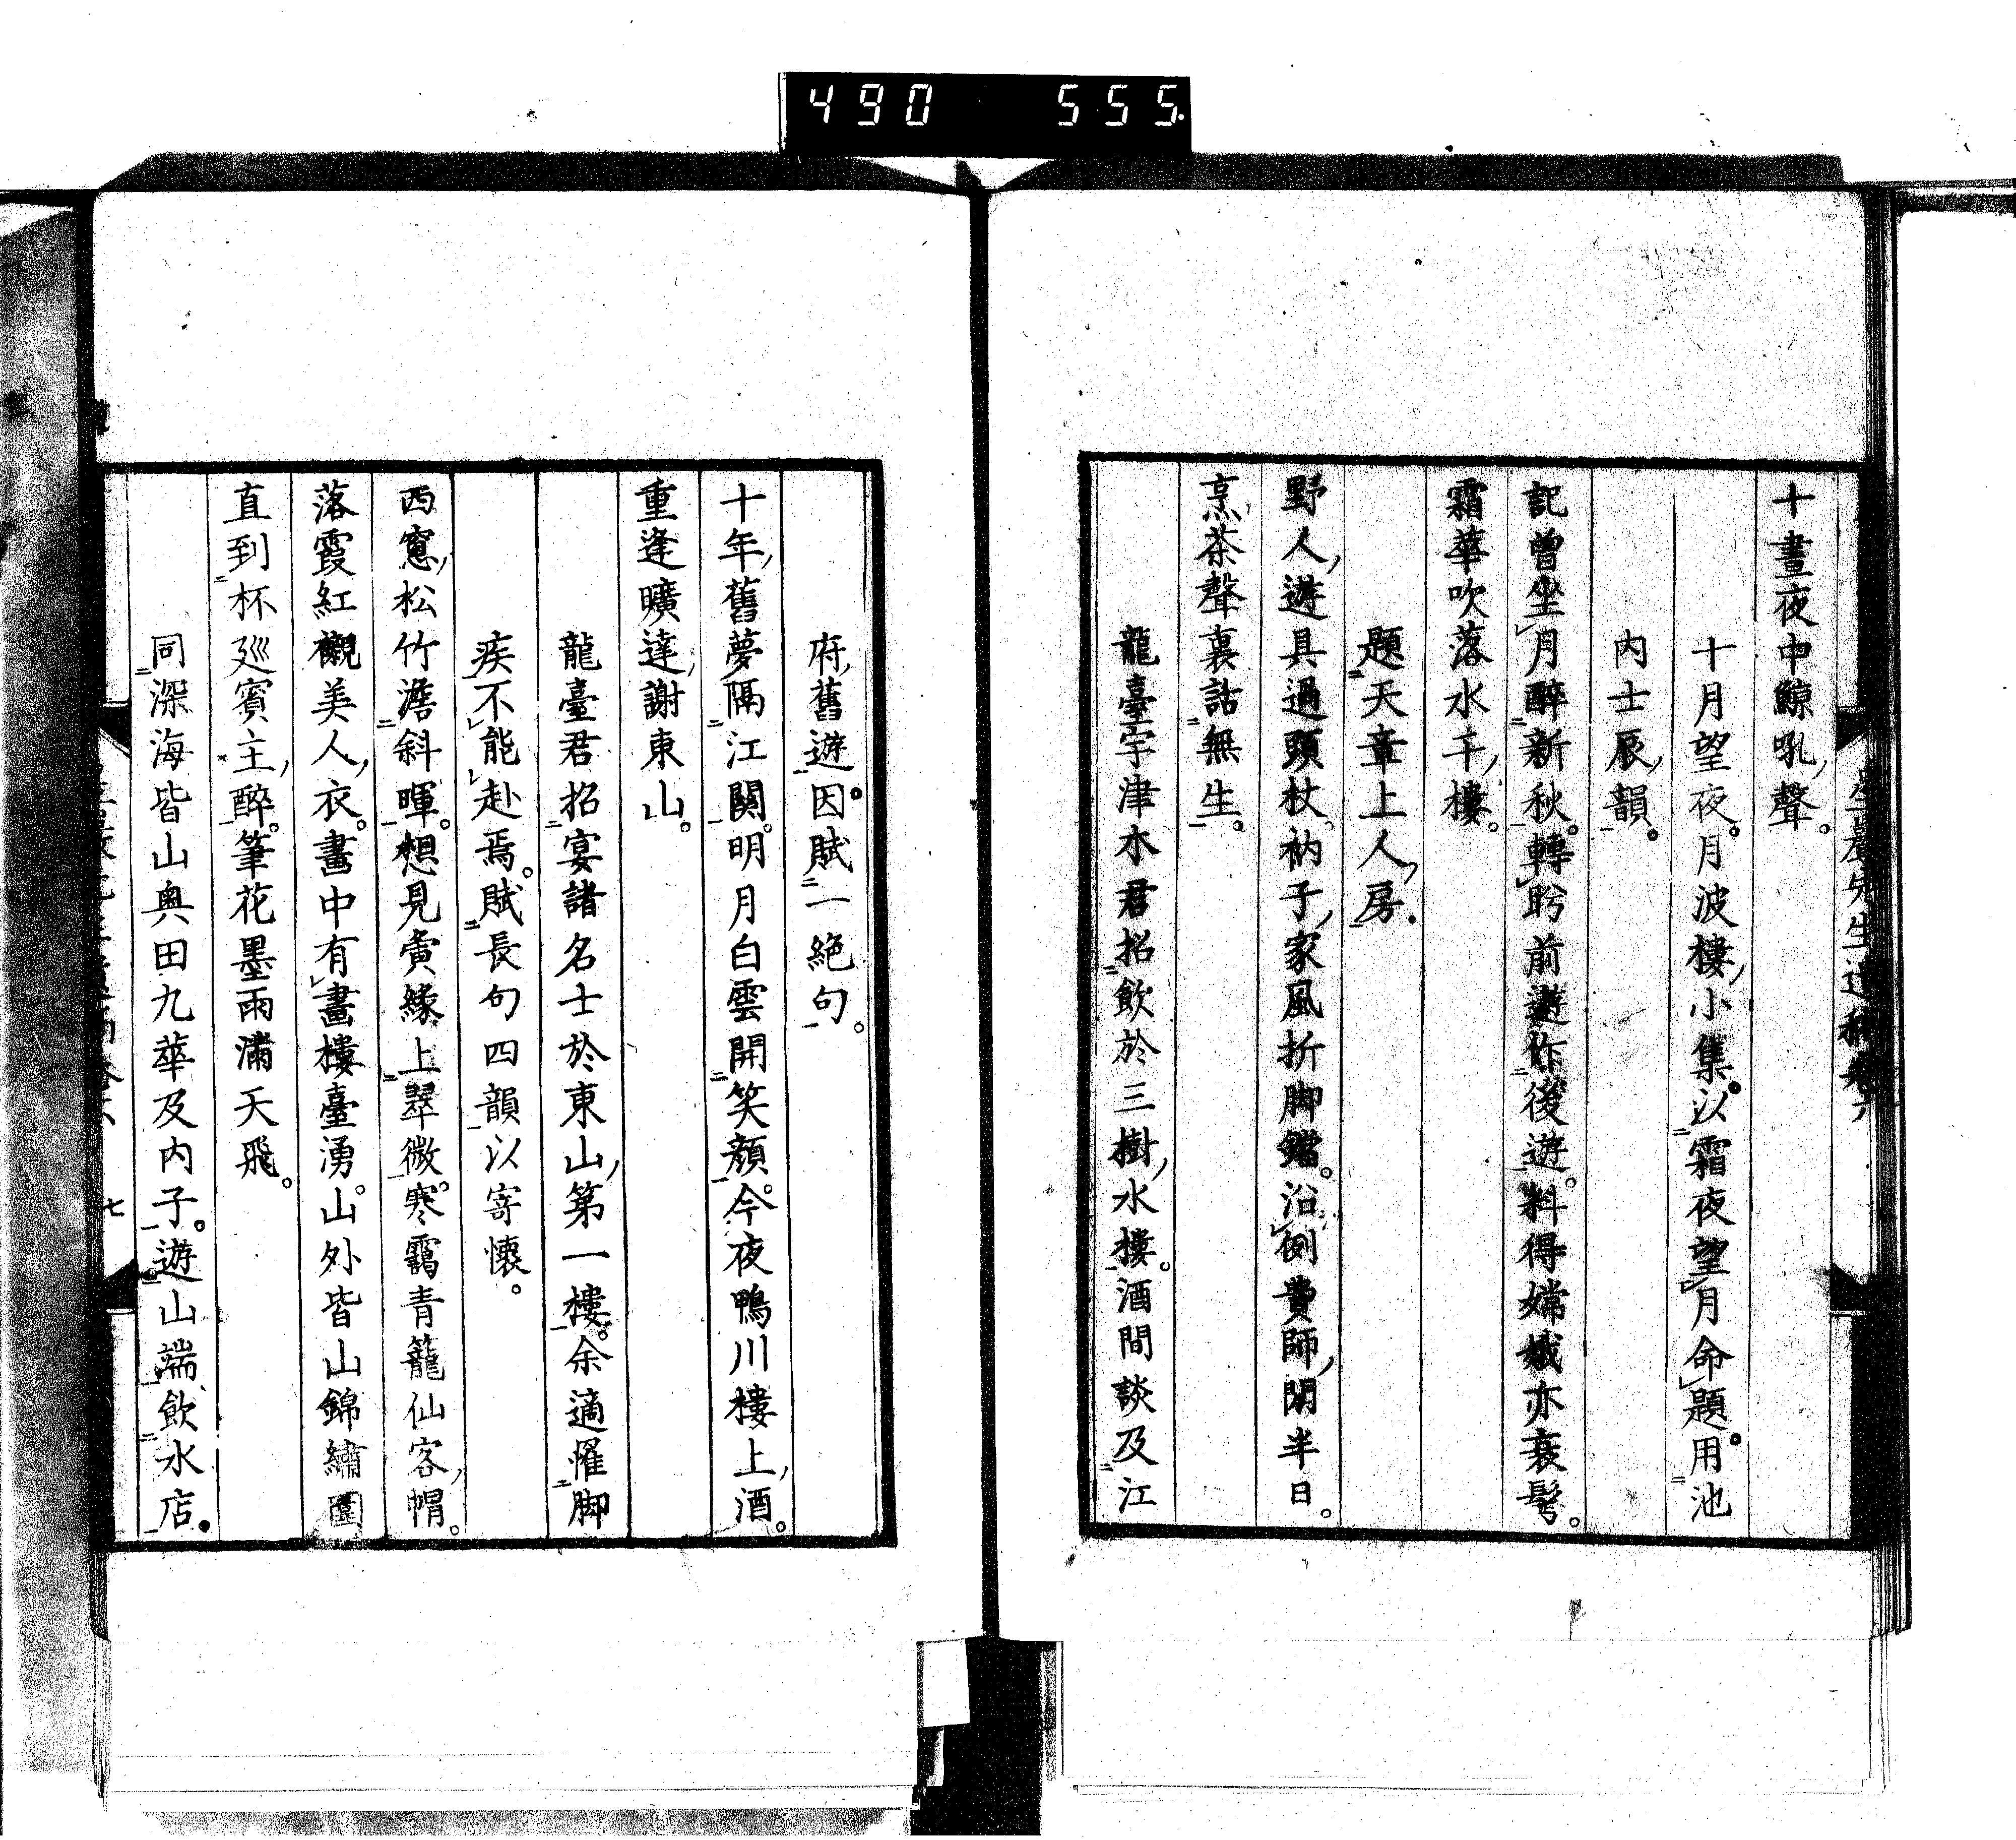 490 555.
十晝夜中鯨吼聲。
十月望夜。月波樓小集。以霜夜望月命題。用池
内士辰韻。
記曾坐月醉新秋。轉眄前遊作後遊。料得嫦娥亦衰鬢。
霜華吹落水千樓。
題天章上人房。
野人遊具過頭杖。衲子家風折脚鐺。沿例費師閒半日。
烹茶聲裏話無生。
龍臺宇津木君招飲於三樹水樓。酒間談及江
府舊遊。因賦一絕句。
十年舊夢隔江關。明月白雲開笑顏。今夜鴨川樓上酒。
重逢曠達謝東山。
龍臺君招宴諸名士於東山第一樓。余適罹脚
疾不能赴焉。賦長句四韻以寄懷。
西窻松竹澹斜暉。想見夤緣上翠微。寒靄青籠仙客帽。
落霞紅襯美人衣。畫中有畫樓臺湧。山外皆山錦繡圍
直到杯巡賓主醉。筆花墨雨滿天飛。
同深海皆山奥田九華及内子。遊山端飲水店。
七